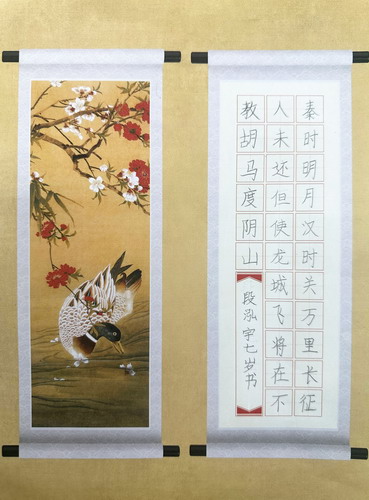 秦时明月汉时关万里长征
人未还但使龙城飞将在不
教胡马度阴山
段泓宇七岁书